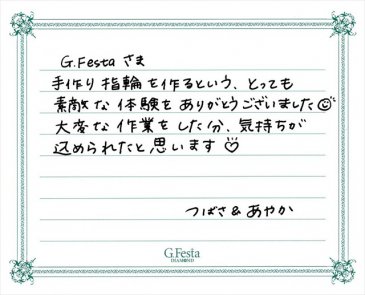 G.Festa さま
手作り指輪を作るという、とっても
素敵な体験をありがとうございました
大変な作業をした分、気持ちが
込められたと思います♡
つばさ & あやか
G.Festa
DIAMOND